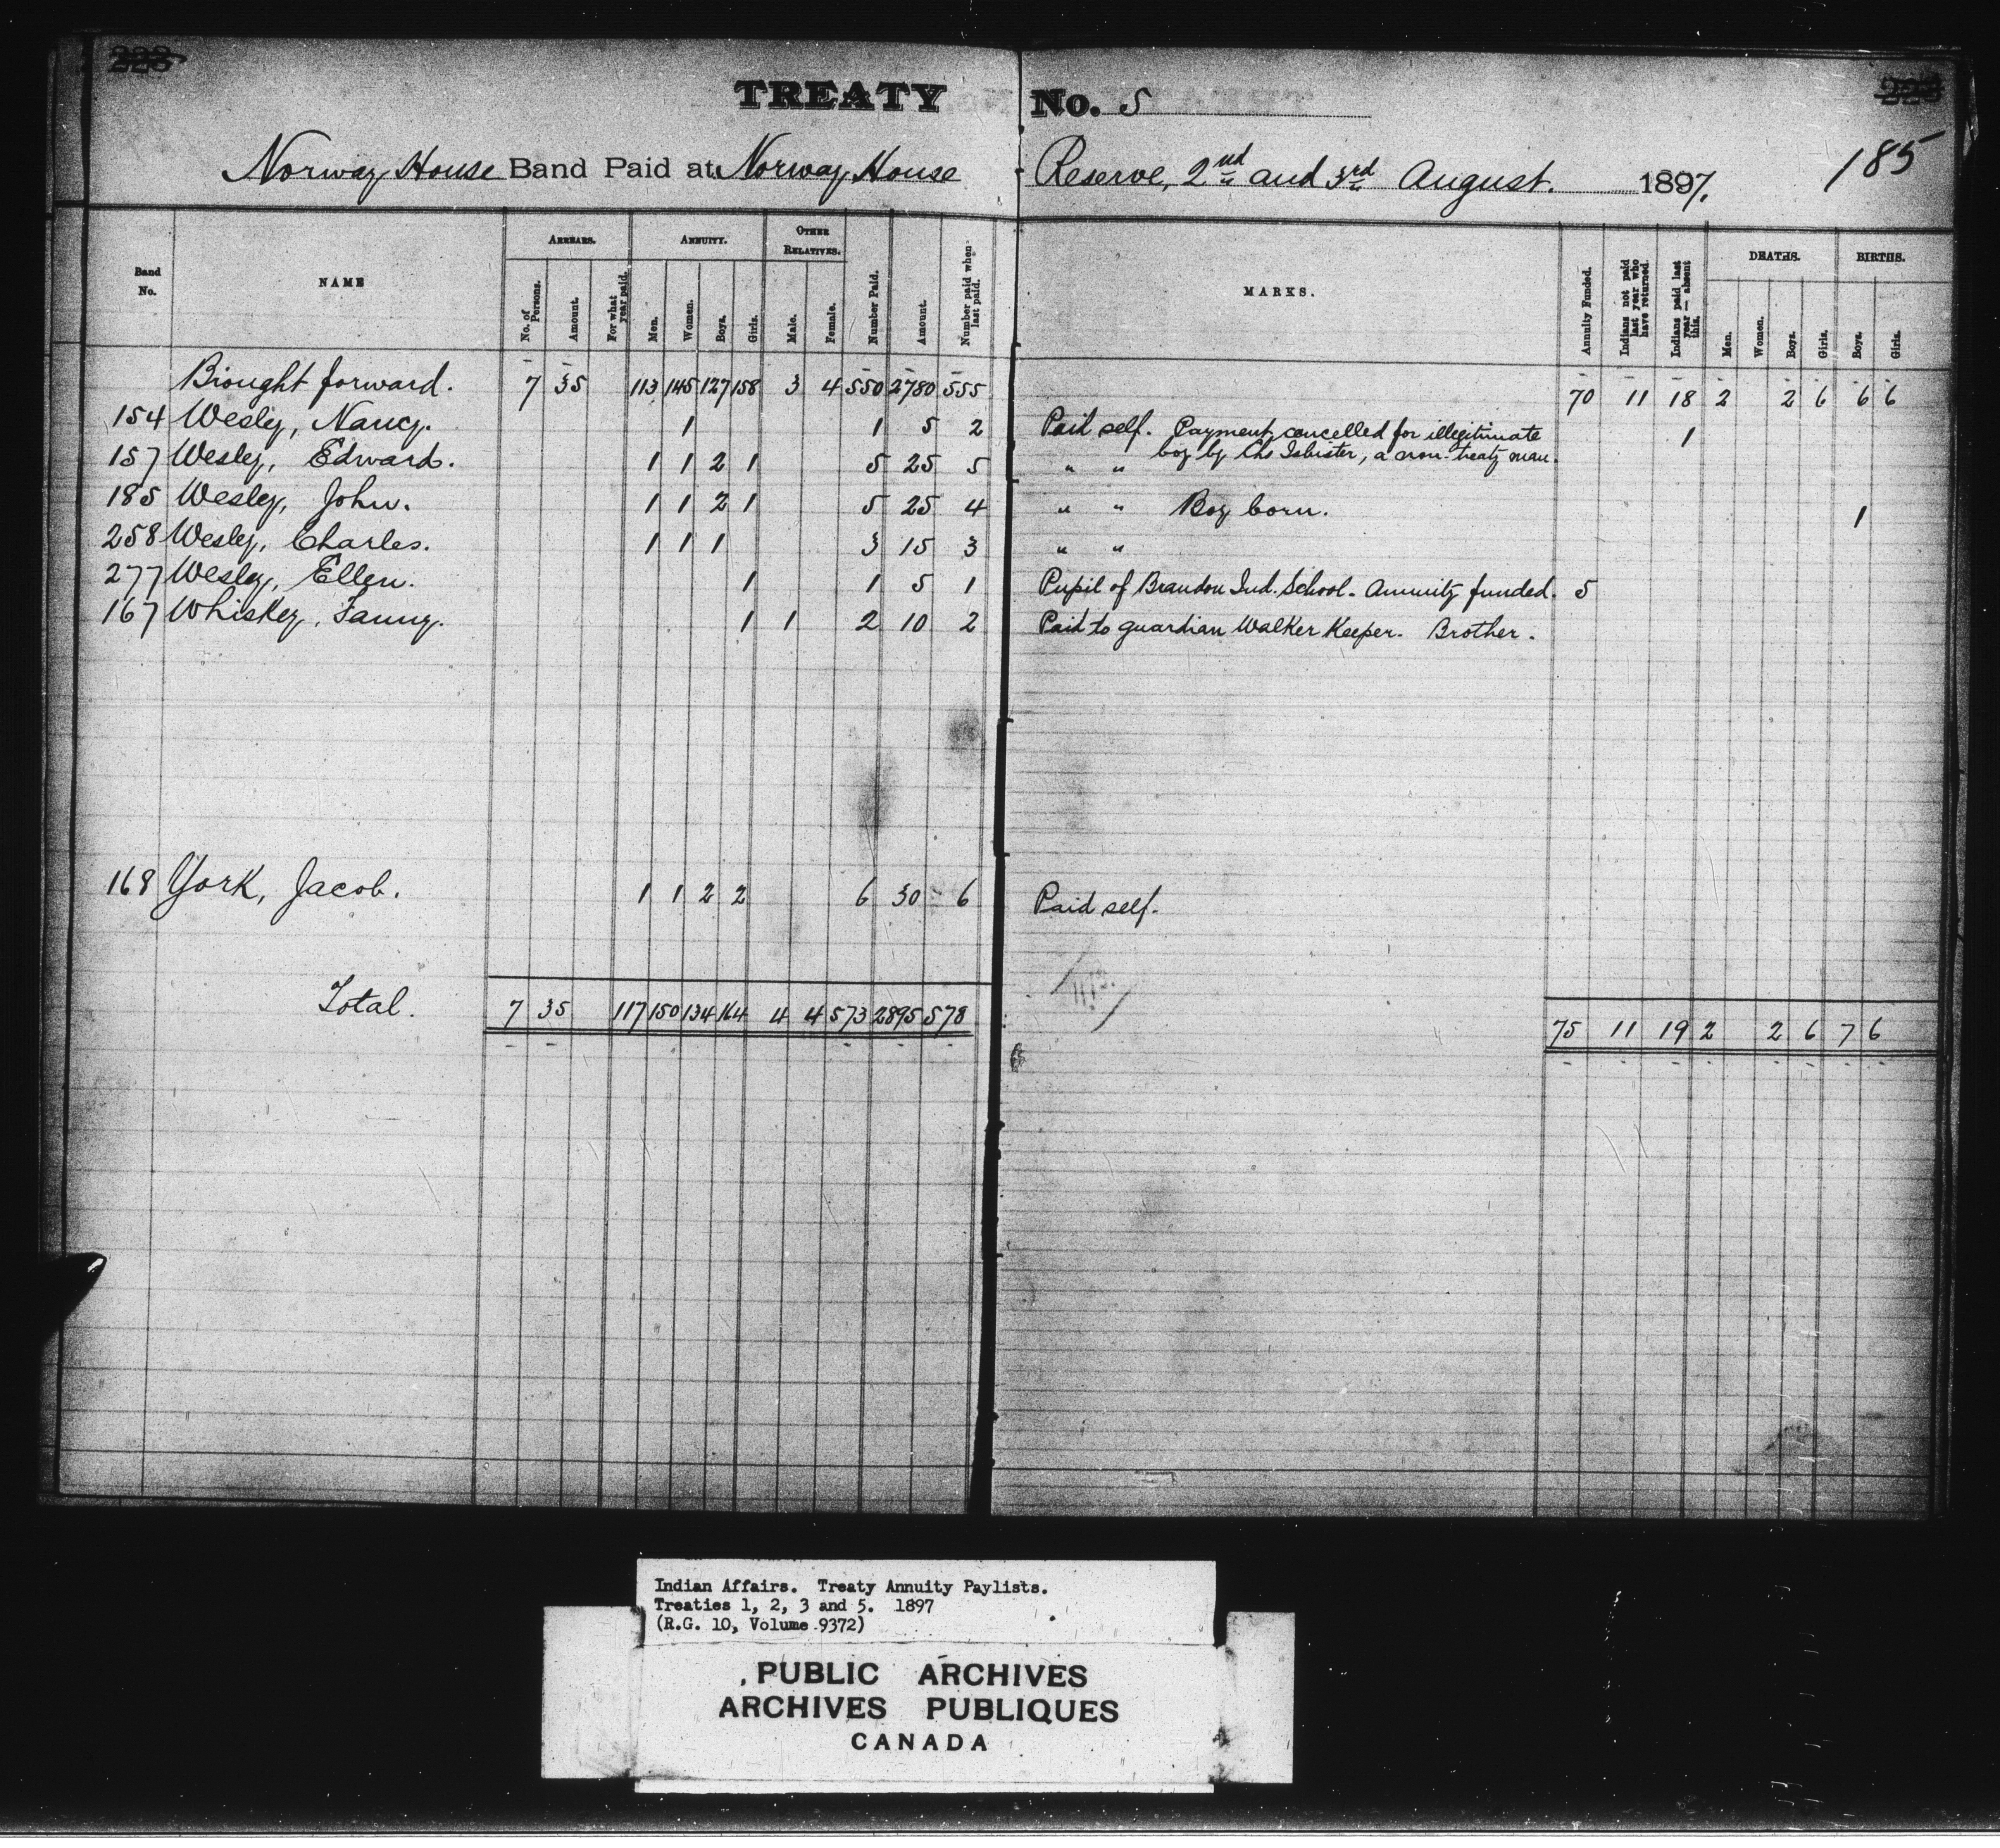 223 223
TREATY No. 5
185
Norway House Band Paid at Norway House Reserve, 2nd and 3rd August. 1897.
Band No. NAME ARREARS. No. of Persons. Amount. For what year paid. ANNUITY. Men. Women. Boys. Girls. OTHER RELATIVES. Male. Female. Number Paid. Amount. Number paid when last paid. MARKS. Annuity Funded. Indians not paid last year who have returned. Indians paid last year — absent this. DEATHS. Men. Women. Boys. Girls. BIRTHS. Boys. Girls.
Brought forward. 7 35 113 145 127 158 3 4 550 2780 555 70 11 18 2 2 6 6 6
154 Wesley, Nancy. 1 1 5 2 Paid self. Payment cancelled for illegitimate 1
boy by Chs Isbister, a non-treaty man.
157 Wesley, Edward. 1 1 2 1 5 25 5 " "
185 Wesley, John. 1 1 2 1 5 25 4 " " Boy born. 1
258 Wesley, Charles. 1 1 1 3 15 3 " "
277 Wesley, Ellen. 1 1 5 1 Pupil of Brandon Ind. School. Annuity funded. 5
167 Whiskey, Fanny. 1 1 2 10 2 Paid to guardian Walker Keeper. Brother.
168 York, Jacob. 1 1 2 2 6 30 6 Paid self.
Total. 7 35 117 150 134 164 4 4 573 2895 578 75 11 19 2 2 6 7 6
Indian Affairs. Treaty Annuity Paylists.
Treaties 1, 2, 3 and 5. 1897
(R.G. 10, Volume 9372)
PUBLIC ARCHIVES
ARCHIVES PUBLIQUES
CANADA